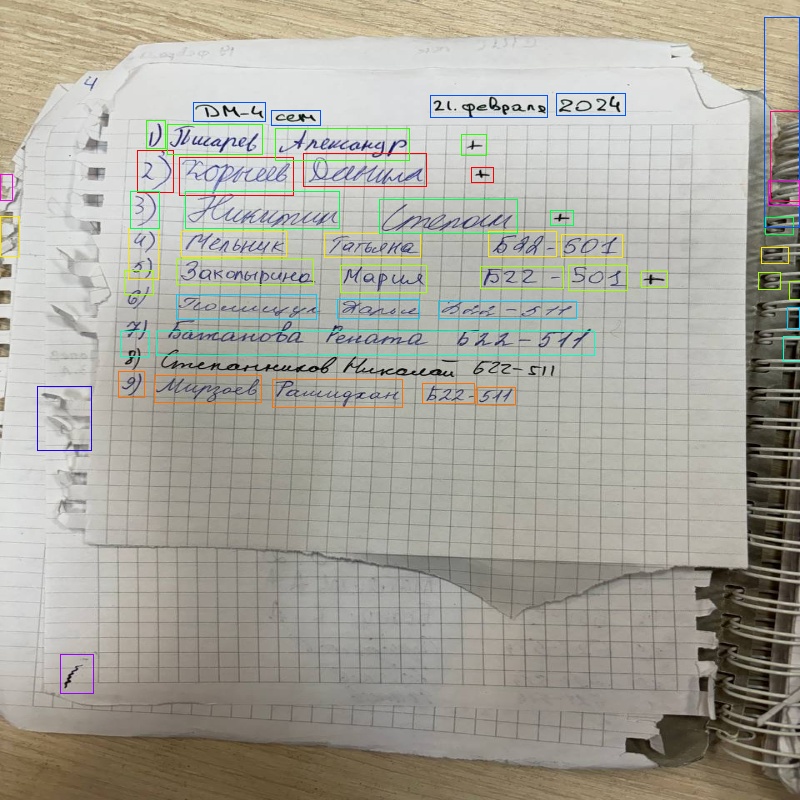 4
ДМ-4 сем 21. февраля 2024
1) Писарев Александр +
2) Корнеев Данила +
3) Никитин Степан +
4) Мельник Татьяна Б22-501
5) Закатырина Мария Б22-501 +
6) Дарья Б22-511
7) Бажанова Рената Б22-511
8) Степанников Николай Б22-511
9) Мирзоев Рашидхан Б22-511